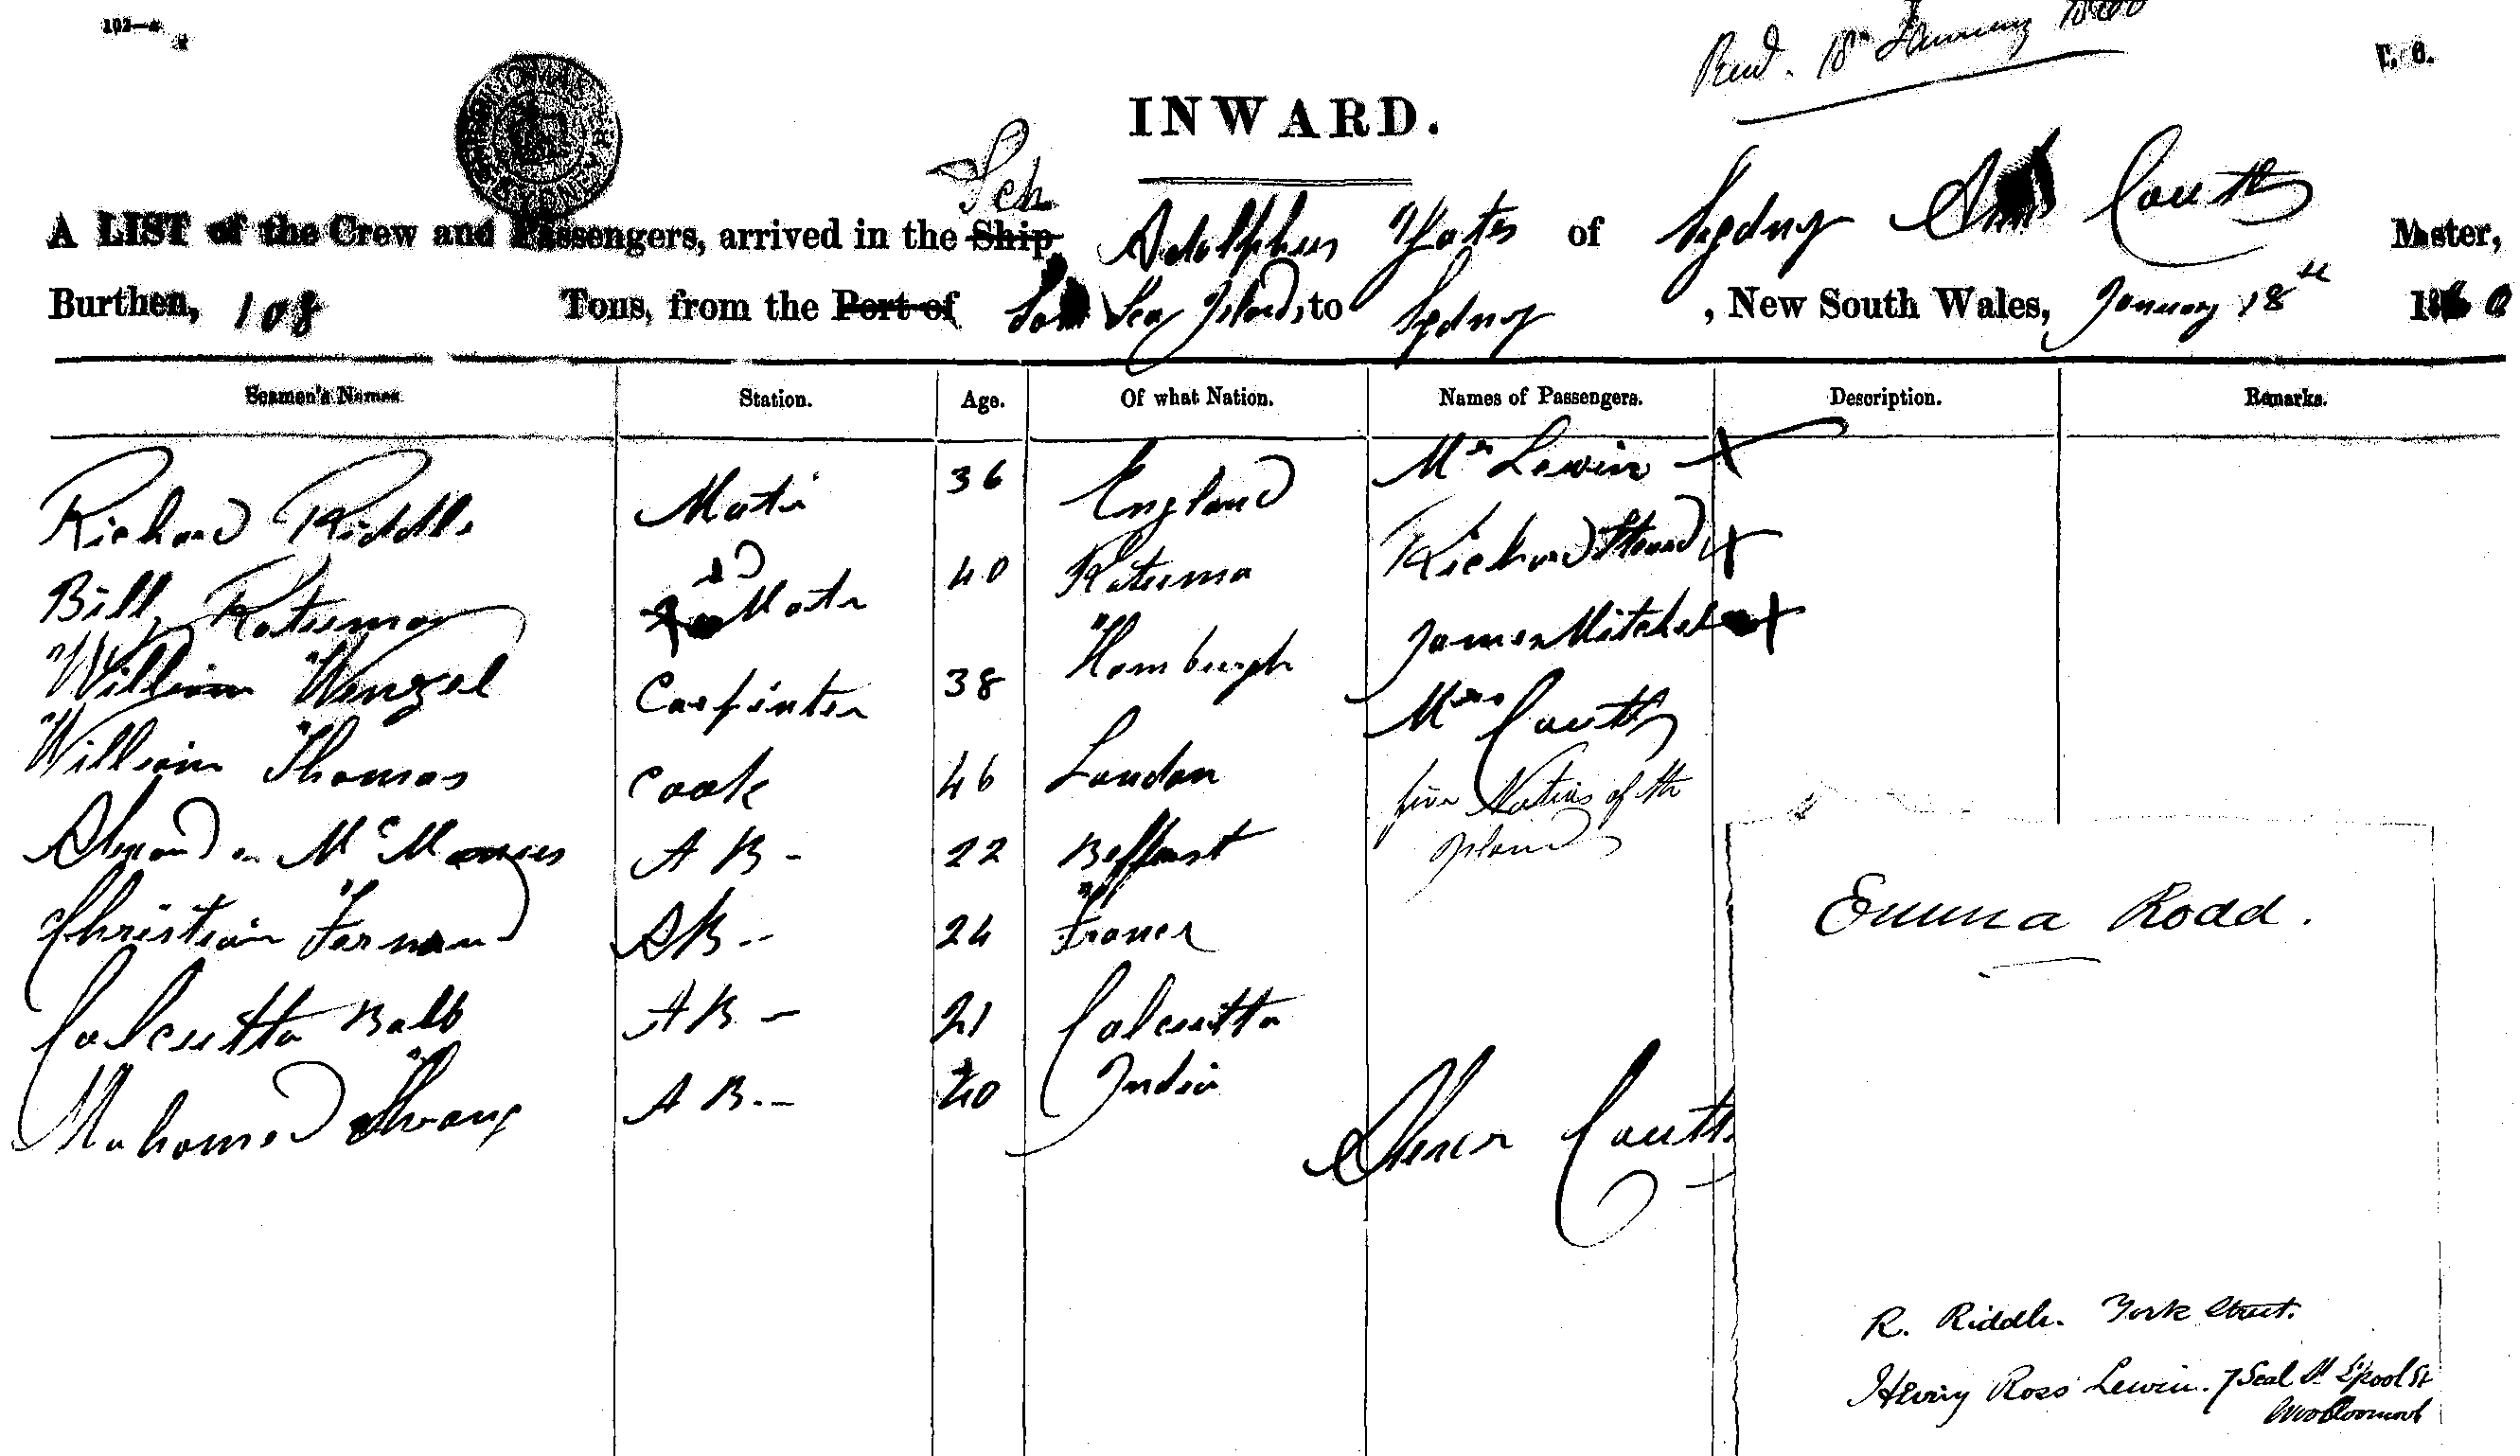 INWARD.
Recd. 18th January 1860
T. C.
Sch
A LIST of the Crew and Passengers, arrived in the Ship Adolphus Yates of Sydney Coutts Master,
Burthen, 108 Tons, from the Port of Sea Islands, to Sydney, New South Wales, January 18th 1860
Seamen's Names. Station. Age. Of what Nation. Names of Passengers. Description. Remarks.
Richard Riddle Mate 36 England Mr Lewin
Billy Roteumar 2d Mate 40 Roteuma Richard
William Wenzel Carpenter 38 Hamburgh James Mitchel
William Thomas Cook 46 London Mrs Coutts
five Natives of the
Island
Alexander Mc A B 22 Belfast
Christian A B 24 France
Calcutta A B 21 Calcutta
Mahomed A B 40 India
Coutts
Emma Rodd.
R. Riddle. York Street.
Henry Ross Lewin. 7 L'pool St